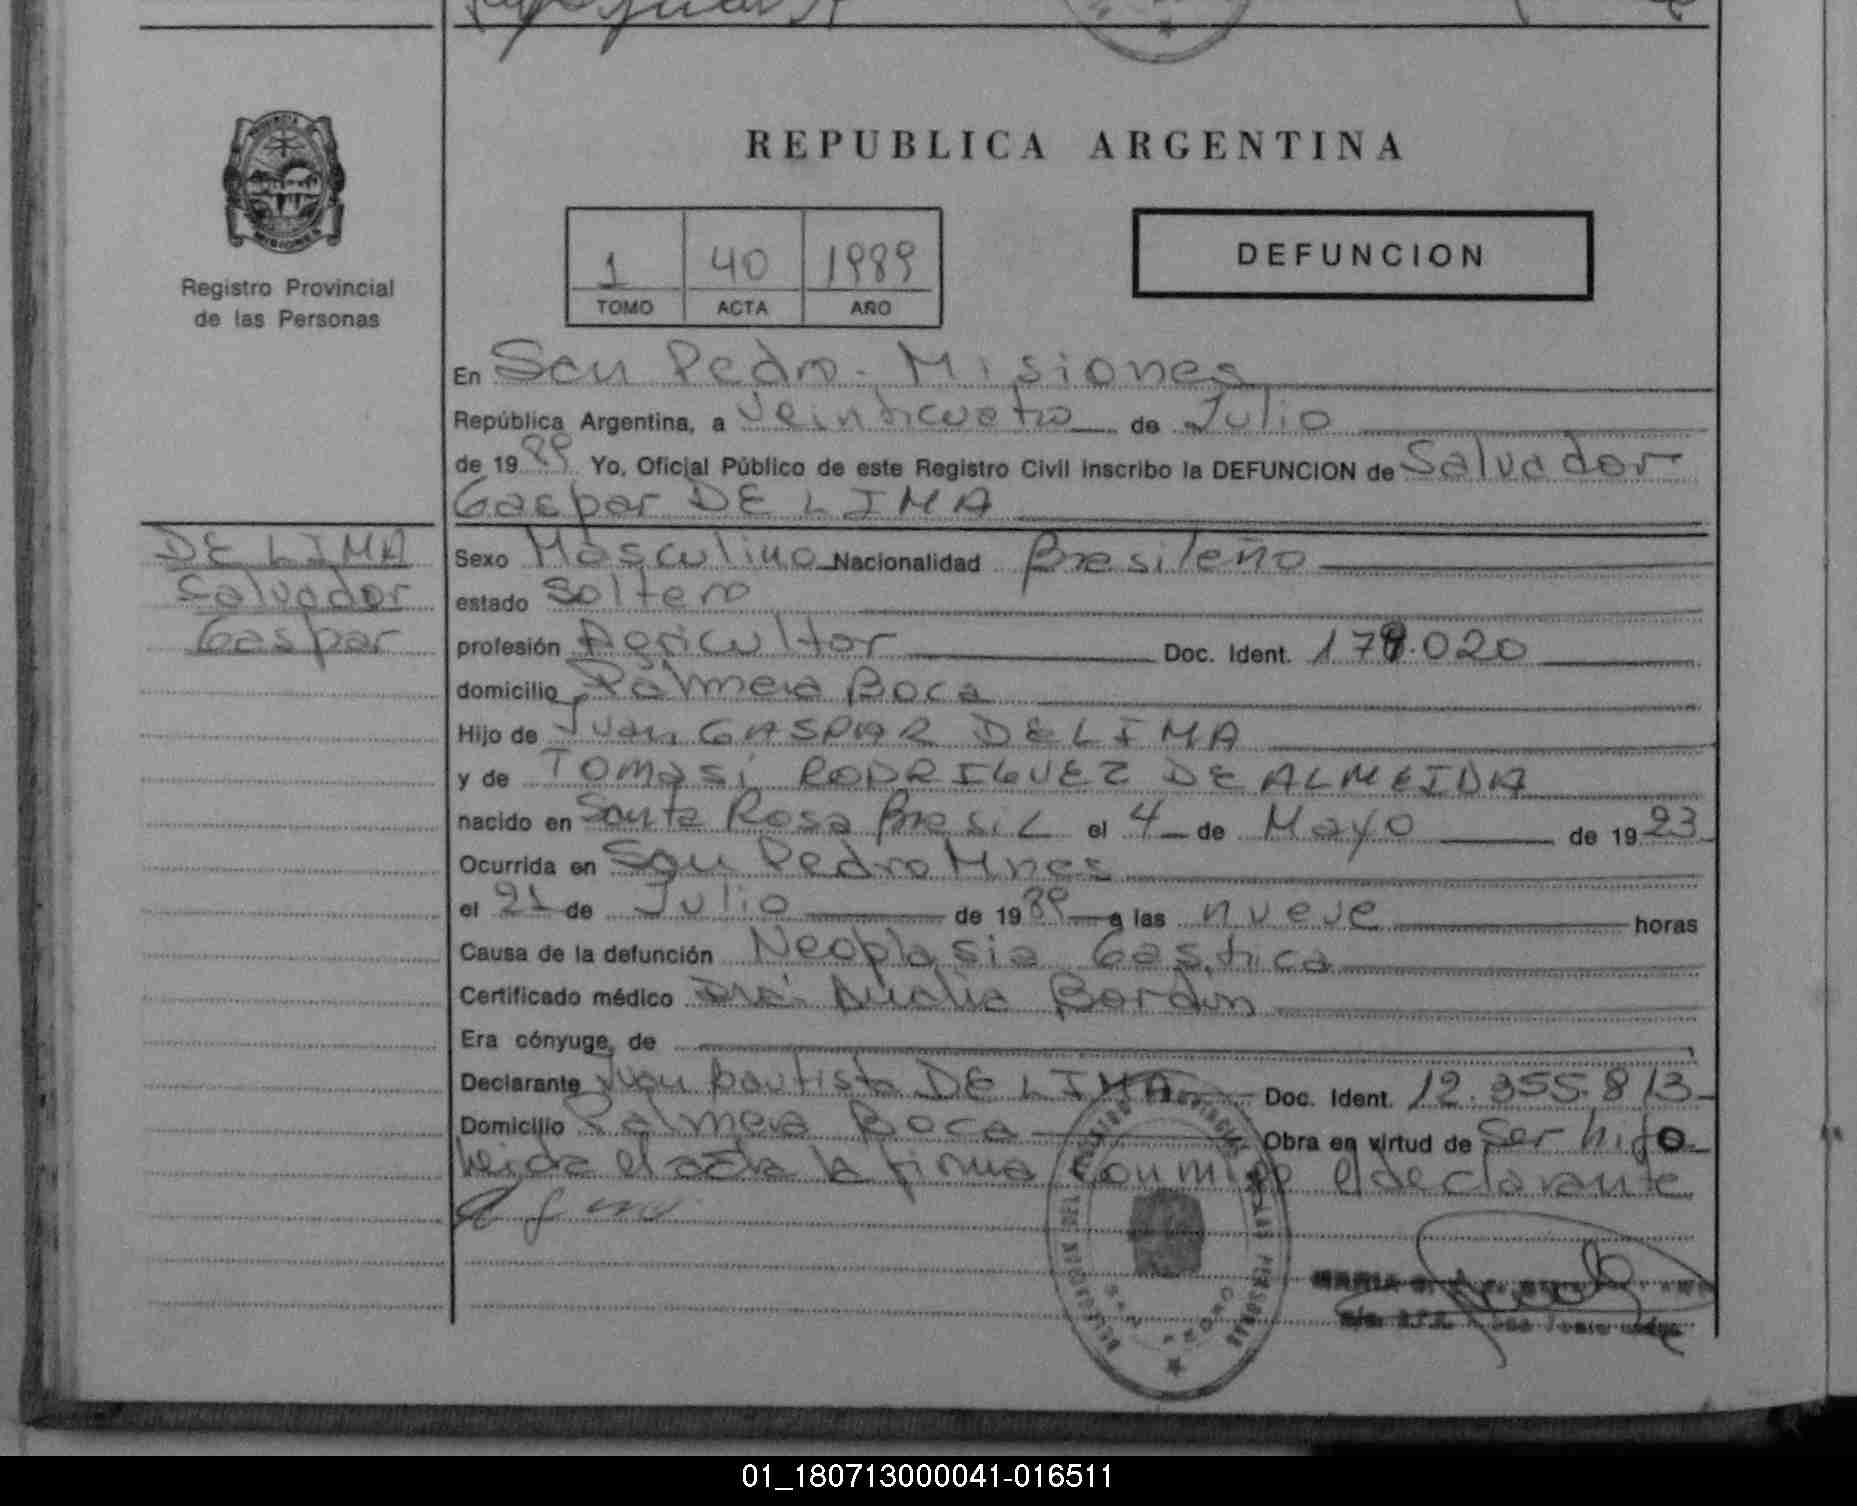 REPUBLICA ARGENTINA
Registro Provincial
de las Personas
1 40 1989
TOMO ACTA AÑO
DEFUNCION
En San Pedro - Misiones
República Argentina, a Veinticuatro de Julio
de 1989 Yo, Oficial Público de este Registro Civil inscribo la DEFUNCION de Salvador
Gaspar DE LIMA
DE LIMA
Salvador
Gaspar
Sexo Masculino Nacionalidad Brasileño
estado Soltero
profesión Agricultor Doc. Ident. 179.020
domicilio Palmera Boca
Hijo de Juan GASPAR DE LIMA
y de Tomasi RODRIGUEZ DE ALMEIDA
nacido en Santa Rosa Brasil el 4 de Mayo de 1923
Ocurrida en San Pedro Mnes
el 21 de Julio de 1989 a las nueve horas
Causa de la defunción Neoplasia Gástrica
Certificado médico Dra. Bordin
Era cónyuge de
Declarante Juan bautista DE LIMA Doc. Ident. 12.355.813
Domicilio Palmera Boca Obra en virtud de Ser hijo
leida el acta la firma conmigo el declarante
PERSONAS
01_180713000041-016511